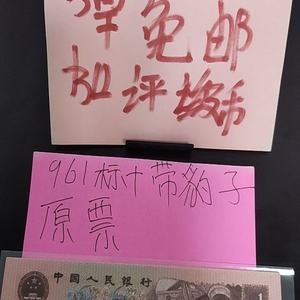 弹免邮
扣评坡币
961标十带豹子
原票
中国人民银行